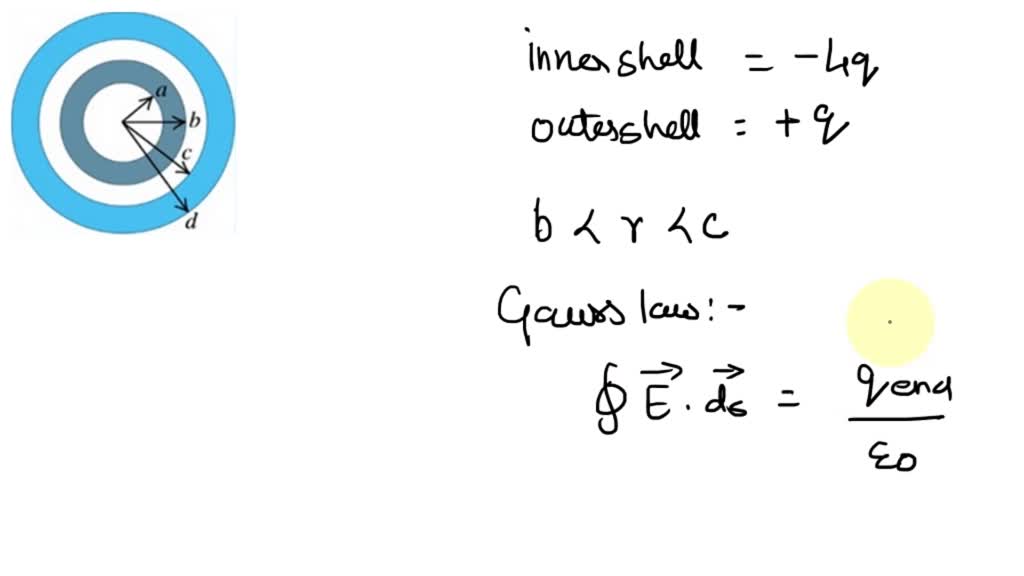 a
b
c
d
inner shell = -4q
outershell = +q
b < r < c
Gauss law:-
∮ E⃗ . ds⃗ = qencl / ε0